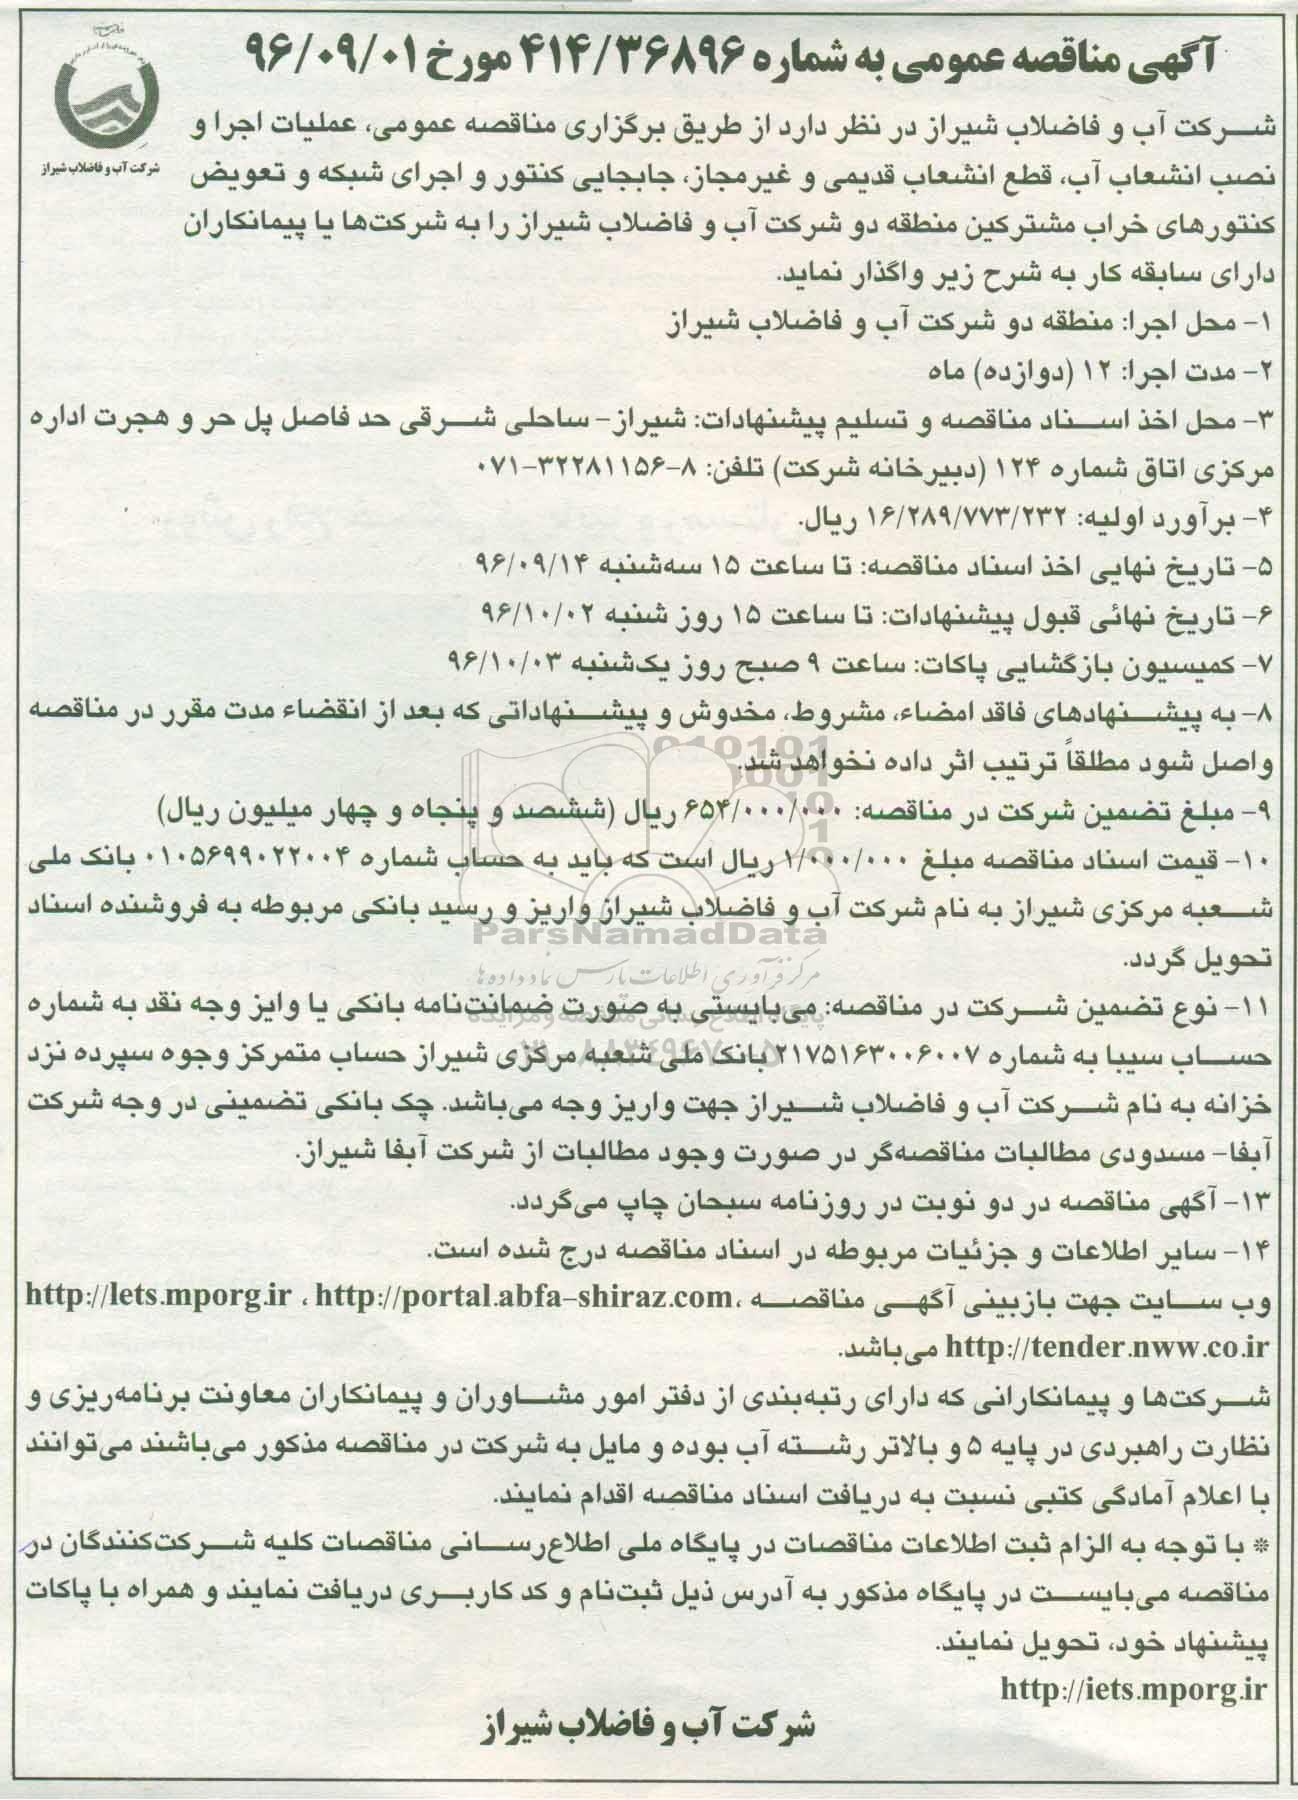 آگهی مناقصه عمومی به شماره ۴۱۴/۳۶۸۹۶ مورخ ۹۶/۰۹/۰۱
شرکت آب و فاضلاب شیراز
شرکت آب و فاضلاب شیراز در نظر دارد از طریق برگزاری مناقصه عمومی، عملیات اجرا و
نصب انشعاب آب، قطع انشعاب قدیمی و غیرمجاز، جابجایی کنتور و اجرای شبکه و تعویض
کنتورهای خراب مشترکین منطقه دو شرکت آب و فاضلاب شیراز را به شرکت‌ها یا پیمانکاران
دارای سابقه کار به شرح زیر واگذار نماید.
۱- محل اجرا: منطقه دو شرکت آب و فاضلاب شیراز
۲- مدت اجرا: ۱۲ (دوازده) ماه
۳- محل اخذ اسناد مناقصه و تسلیم پیشنهادات: شیراز- ساحلی شرقی حد فاصل پل حر و هجرت اداره
مرکزی اتاق شماره ۱۲۴ (دبیرخانه شرکت) تلفن: ۸-۳۲۲۸۱۱۵۶-۰۷۱
۴- برآورد اولیه: ۱۶/۲۸۹/۷۷۳/۲۳۲ ریال.
۵- تاریخ نهایی اخذ اسناد مناقصه: تا ساعت ۱۵ سه‌شنبه ۹۶/۰۹/۱۴
۶- تاریخ نهائی قبول پیشنهادات: تا ساعت ۱۵ روز شنبه ۹۶/۱۰/۰۲
۷- کمیسیون بازگشایی پاکات: ساعت ۹ صبح روز یک‌شنبه ۹۶/۱۰/۰۳
۸- به پیشنهادهای فاقد امضاء، مشروط، مخدوش و پیشنهاداتی که بعد از انقضاء مدت مقرر در مناقصه
واصل شود مطلقاً ترتیب اثر داده نخواهد شد.
۹- مبلغ تضمین شرکت در مناقصه: ۶۵۴/۰۰۰/۰۰۰ ریال (ششصد و پنجاه و چهار میلیون ریال)
۱۰- قیمت اسناد مناقصه مبلغ ۱/۰۰۰/۰۰۰ ریال است که باید به حساب شماره ۰۱۰۵۶۹۹۰۲۲۰۰۴ بانک ملی
شعبه مرکزی شیراز به نام شرکت آب و فاضلاب شیراز واریز و رسید بانکی مربوطه به فروشنده اسناد
ParsNamadData
تحویل گردد.
مرکز فرآوری اطلاعات پارس نماد داده‌ها
۱۱- نوع تضمین شرکت در مناقصه: می‌بایستی به صورت ضمانت‌نامه بانکی یا وایز وجه نقد به شماره
حساب سیبا به شماره ۲۱۷۵۱۶۳۰۰۶۰۰۷ بانک ملی شعبه مرکزی شیراز حساب متمرکز وجوه سپرده نزد
خزانه به نام شرکت آب و فاضلاب شیراز جهت واریز وجه می‌باشد. چک بانکی تضمینی در وجه شرکت
آبفا- مسدودی مطالبات مناقصه‌گر در صورت وجود مطالبات از شرکت آبفا شیراز.
۱۳- آگهی مناقصه در دو نوبت در روزنامه سبحان چاپ می‌گردد.
۱۴- سایر اطلاعات و جزئیات مربوطه در اسناد مناقصه درج شده است.
وب سایت جهت بازبینی آگهی مناقصه ، http://portal.abfa-shiraz.com ، http://Iets.mporg.ir
http://tender.nww.co.ir می‌باشد.
شرکت‌ها و پیمانکارانی که دارای رتبه‌بندی از دفتر امور مشاوران و پیمانکاران معاونت برنامه‌ریزی و
نظارت راهبردی در پایه ۵ و بالاتر رشته آب بوده و مایل به شرکت در مناقصه مذکور می‌باشند می‌توانند
با اعلام آمادگی کتبی نسبت به دریافت اسناد مناقصه اقدام نمایند.
* با توجه به الزام ثبت اطلاعات مناقصات در پایگاه ملی اطلاع‌رسانی مناقصات کلیه شرکت‌کنندگان در
مناقصه می‌بایست در پایگاه مذکور به آدرس ذیل ثبت‌نام و کد کاربری دریافت نمایند و همراه با پاکات
پیشنهاد خود، تحویل نمایند.
http://iets.mporg.ir
شرکت آب و فاضلاب شیراز